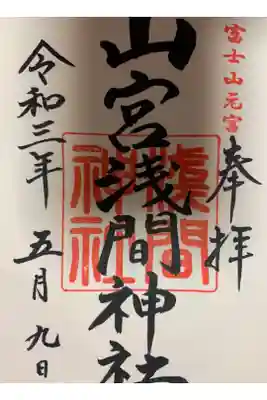 富士山元宮
奉拝
山宮浅間神社
淺間神社
令和三年 五月 九日